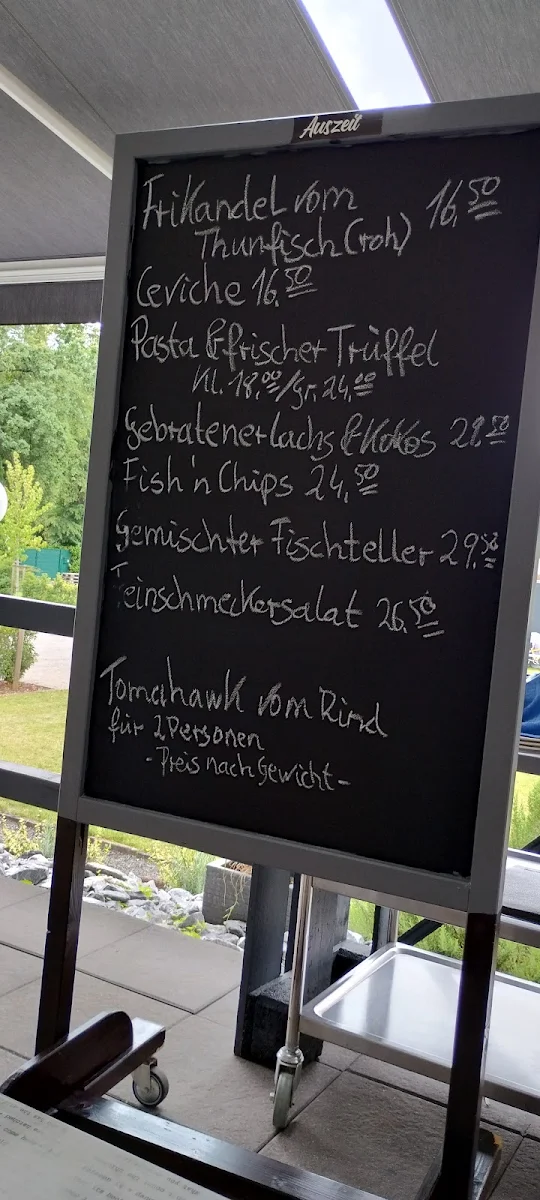 Auszeit
Frikandel vom 16,50
Thunfisch (roh)
Ceviche 16,50
Pasta & frischer Trüffel
Kl. 18,00/gr. 24,00
Gebratener Lachs & Kokos 28,50
Fish'n Chips 24,50
Gemischter Fischteller 29,50
Feinschmeckersalat 26,50
Tomahawk vom Rind
für 2 Personen
- Preis nach Gewicht -